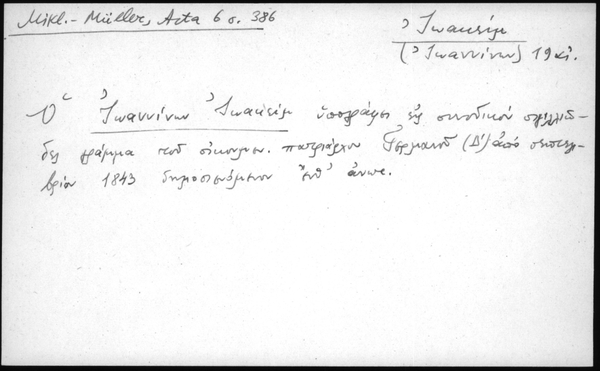 Mikl. - Müller, Acta 6 σ. 386
Ἰωακείμ
(Ἰωαννίνων) 19 αἰ.
Ὁ Ἰωαννίνων Ἰωακείμ ὑπογράφει εἰς συνοδικόν σιγιλλιῶ-
δες γράμμα τοῦ οἰκουμεν. πατριάρχου Γερμανοῦ (Δ') ἀπό σεπτεμ-
βρίου 1843 δημοσιευόμενον ἔνθ' ἄνωτ.